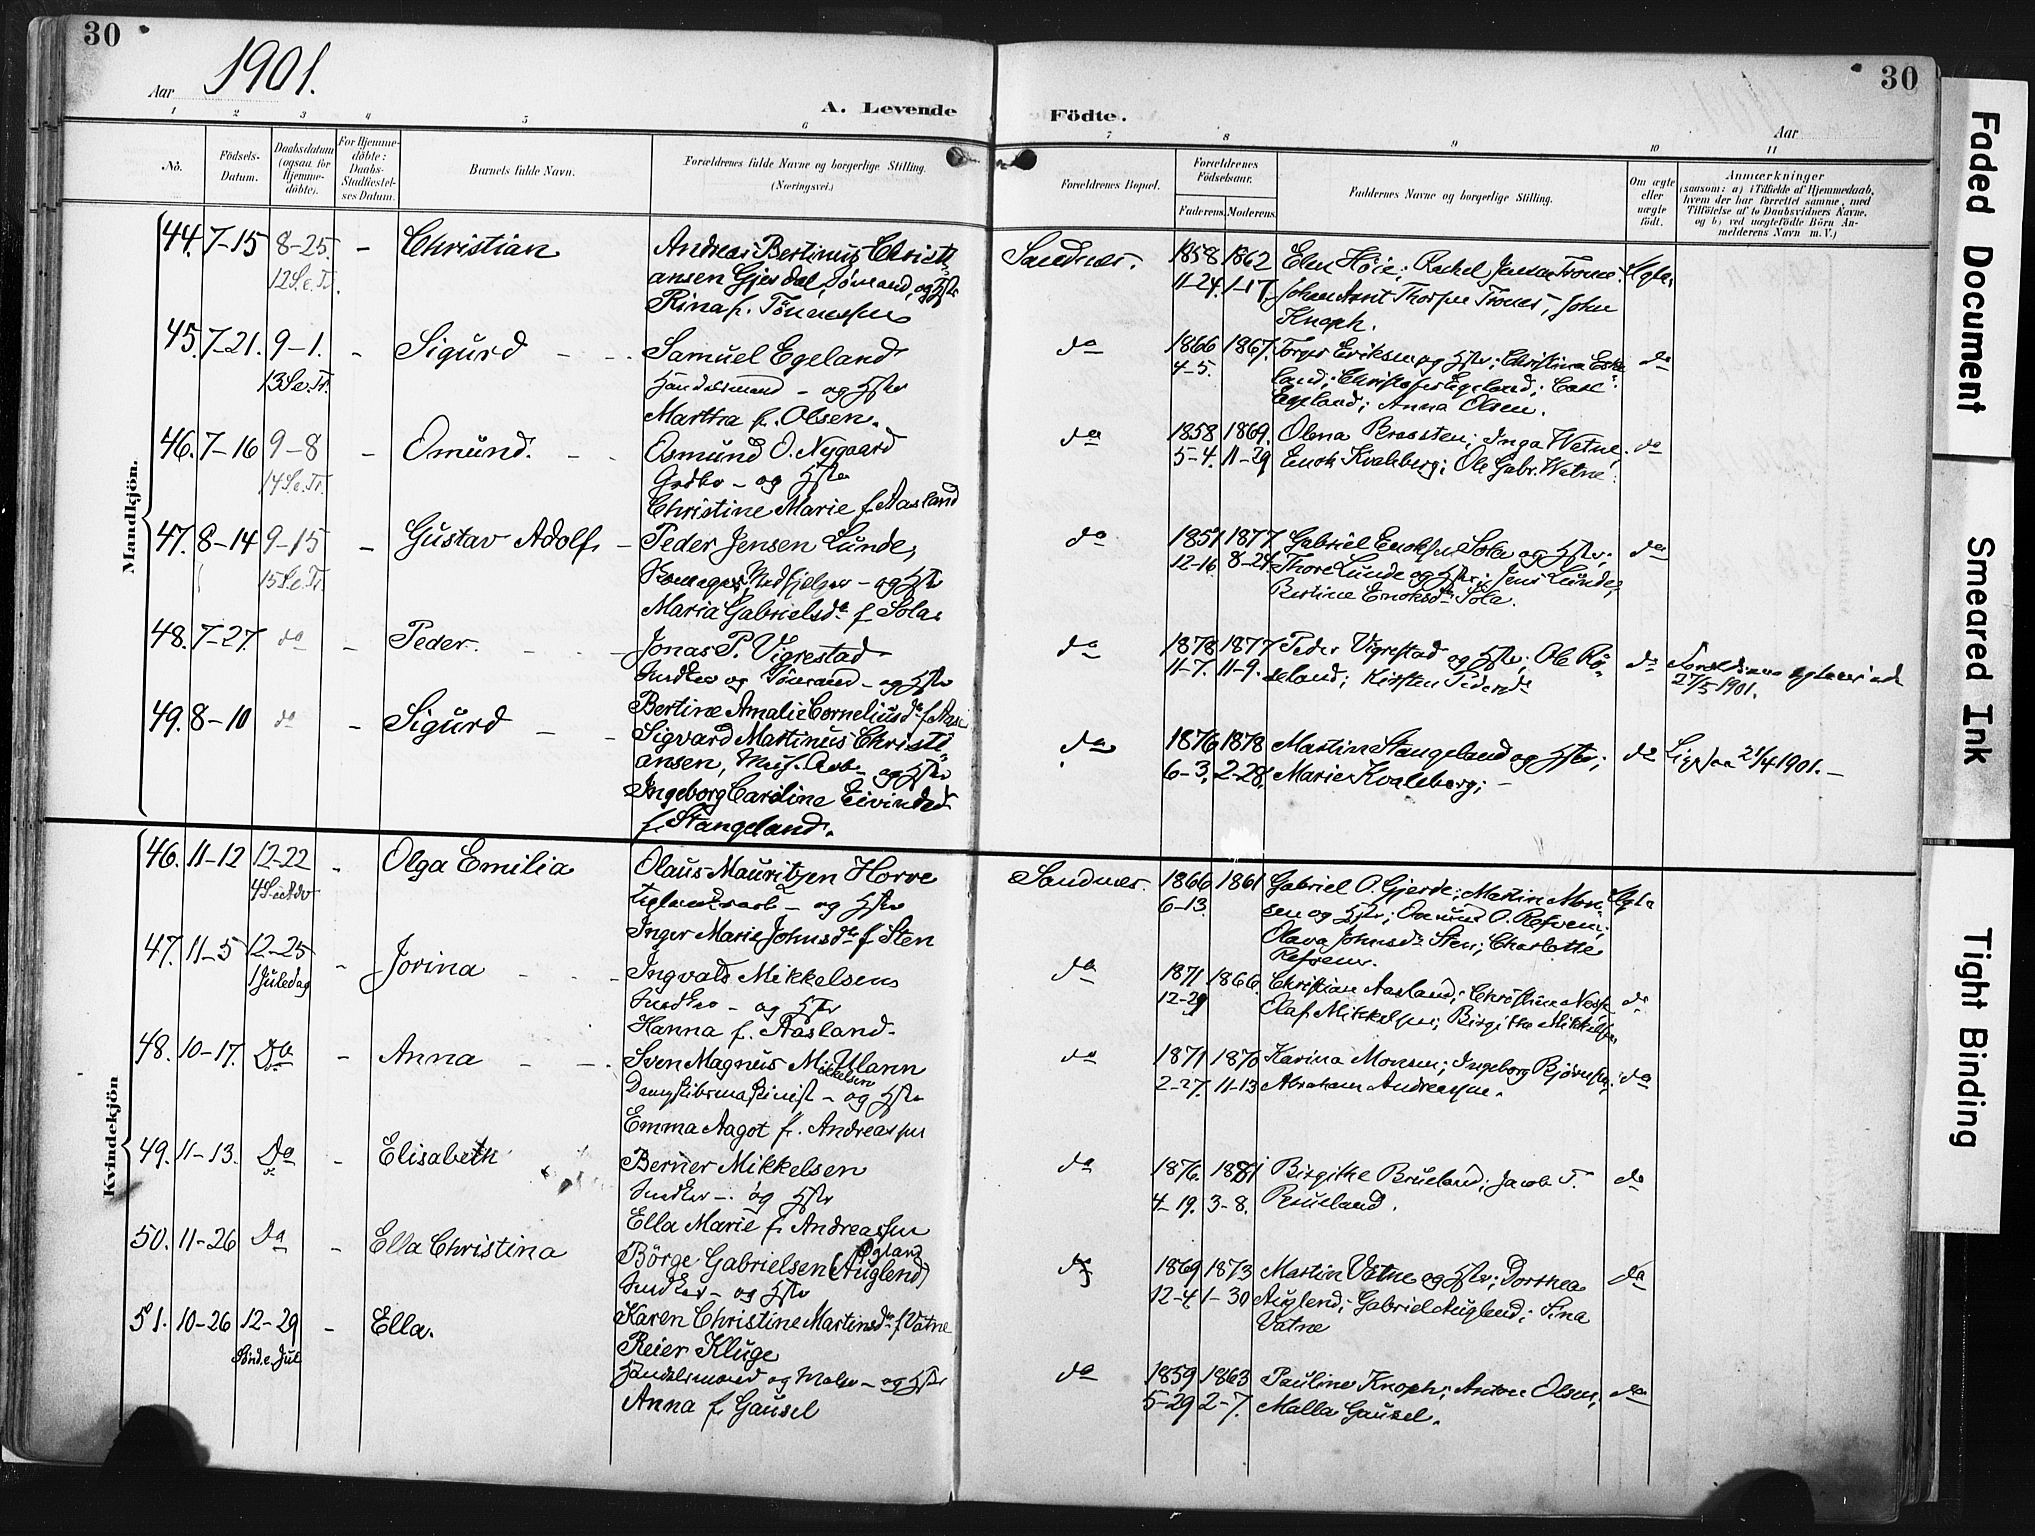 30
Aar 1901.
A. Levende
1 2 3 4 5 6
No.
Fødsels-Datum.
Daabsdatum (ogsaa for Hjemme-døbte).
For Hjemme-døbte: Daabs-Stadfæstel-ses Datum.
Barnets fulde Navn.
Forældrenes fulde Navne og borgerlige Stilling.
(Næringsvei.)
Mandkjön.
44. 7-15 8-25. - Christian
12 S.e.Tr.
Andreas Bertinus Christi-
ansen Gjesdal, Sømand, og Hstr
Rina f. Tönnessen
45. 7-21. 9-1. - Sigurd
13 S.e.Tr.
Samuel Egeland
Handelsmand - og Hstr
Martha f. Olsen.
46. 7-16 9-8 - Omund.
14 S.e.Tr.
Osmund O. Nygaard
og Hstr
Christine Marie f. Aasland
47. 8-14 9-15 - Gustav Adolf.
15 S.e.Tr.
Peder Jensen Lunde,
og Hstr
Maria Gabrielsdr. f. Sola
48. 7-27. do - Peder.
Jonas P. Vigrestad
Snedker og - og Hstr
Bertine Amalie Corneliusdr. f.
49. 8-10 do - Sigurd
Sigvard Martinus Christi-
ansen, og Hstr
Ingeborg Caroline Eivindsdr
f. Stangeland.
Kvindekjön
46. 11-12 12-22 - Olga Emilia
4 S. i Adv
Olaus Mauritzen Horve
og Hstr
Inger Marie Johnsdr. f. Sten
47. 11-5 12-25 - Jorina
1 Juledag
Ingvald Mikkelsen
Snedker - og Hstr
Hanna f. Aasland.
48. 10-17. Do - Anna
Sven Magnus Mikkelsen Ulann
og Hstr
Emma Aagot f. Andreassen
49. 11-13. Do - Elisabeth
Berner Mikkelsen
Snedker - og Hstr
Ella Marie f. Andreassen
50. 11-26 Do - Ella Christina
Börge Gabrielsen (Auglend) Øgland
Snedker - og Hstr
Karen Christine Martinsdr. f. Vatne
51. 10-26 12-29 - Ella.
Sönd.e. Jul
Reier Kluge
Handelsmand og Maler - og Hstr
Anna f. Gausel
30
Födte.
Aar
7 8 9 10 11
Forældrenes Bopæl.
Forældrenes Fødselsaar.
Faderens. Moderens.
Faddernes Navne og borgerlige Stilling.
Om ægte eller uægte født.
Anmærkninger
(saasom: a) i Tilfælde af Hjemmedaab, hvem der har forrettet samme, med Tilføielse af to Daabsvidners Navne, og b) ved uægtefødte Børn An-melderens Navn m. V.)
Sandnes. 1858 1862
11-24. 1-17.
Elen Höie; Rachel Trones
Johan Arnt Trones, John
Knoph.
do 1866 1867.
4-5.
Torger Eriksen og Hstr; Christina
Christofer Egeland; Carl
Egeland; Anna Olsen.
do 1858 1869.
5-4. 11-29
Olena Brassten; Inga Vatne,
Enok Kvaleberg; Ole Gabr. Vatne
do
do 1851 1877
12-16 8-24
Gabriel Enoksen Sola og Hstr;
Thore Lunde og Hstr; Jens Lunde,
Bertine Enoksdr. Sola.
do
do 1878 1877
11-7. 11-9.
Peder Vigrestad og Hstr; Ole Rö-
seland; Kirsten Pedersdr
do
27/5 1901.
do 1876 1878
6-3. 2-28.
Martin Stangeland og Hstr;
Marie Kvaleberg;
do
21/4 1901.
Sandnes. 1866 1861
6-13.
Gabriel O. Gjerde; Martin
og Hstr;
Olava Johnsdr. Sten; Charlotte
do 1871 1866.
12-29
Christian Aasland; Christine
Olaf Mikkelsen; Birgithe Mikkelsen
do
do 1871 1870
2-27. 11-13
Karina Monsen; Ingeborg
Abraham Andreassen.
do
do 1876. 1881
4-19. 3-8.
Birgithe Brueland; Jacob T.
Brueland.
do
do 1869 1873
12-4 1-30
Martin Vatne og Hstr; Dorthea
Auglend; Gabriel Auglend; Sina
Vatne
do
do 1859 1863
5-29 2-7.
Pauline Knoph; Anton Olsen,
Malla Gausel.
do
Faded Document
Smeared Ink
Tight Binding